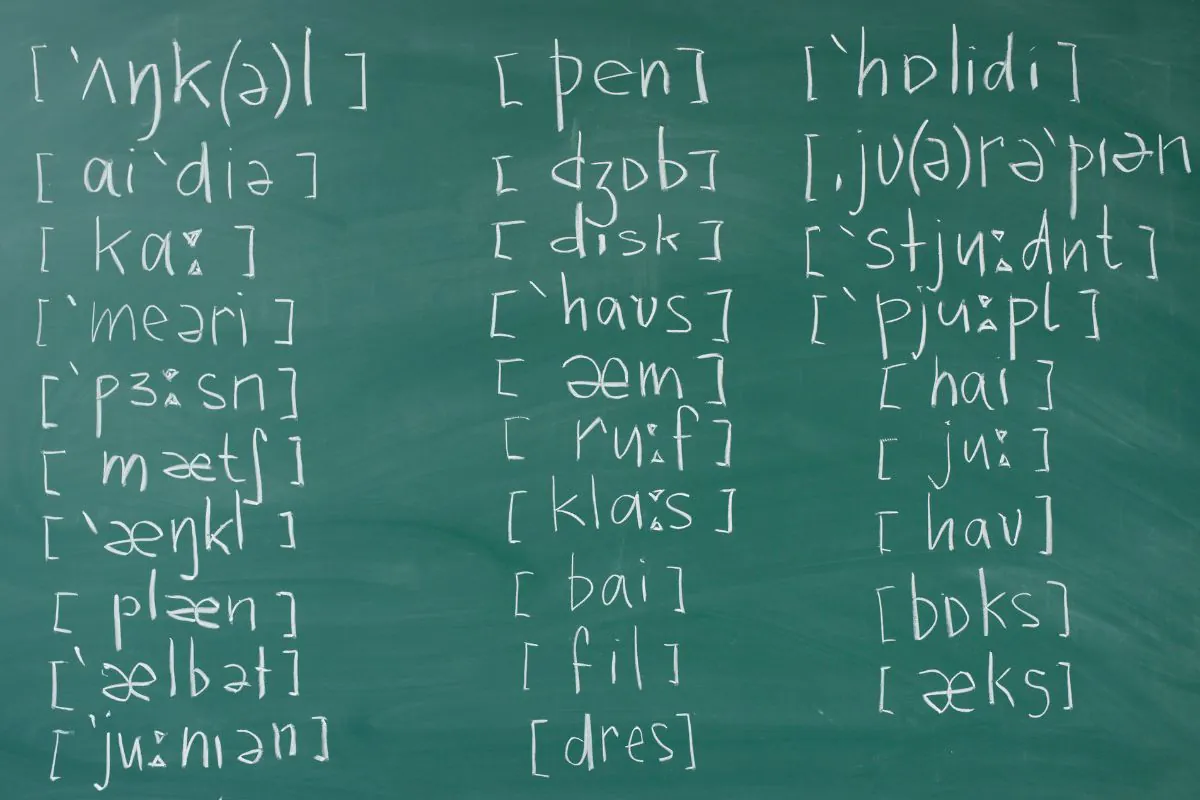 [ˋʌŋk(ə)l]
[aiˋdiə]
[kaː]
[ˋmeəri]
[ˋpɜːsn]
[mætʃ]
[ˋæŋkl]
[plæn]
[ˋælbət]
[ˋjuːnıən]
[pen]
[dʒɒb]
[dısk]
[ˋhaʊs]
[æm]
[ruːf]
[klaːs]
[bai]
[fil]
[dres]
[ˋhɒlidi]
[ˌjʊ(ə)rəˋpıən
[ˋstjuːdnt]
[ˋpjuːpl]
[hai]
[juː]
[haʊ]
[bɒks]
[æks]